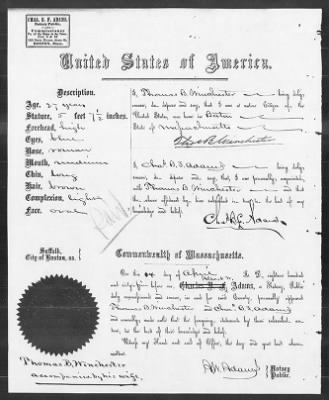 CHAS. B. F. ADAMS,
Notary Public,
Commissioner
BOSTON, Mass.
United States of America.
Description.
Age, 27 years
Stature, 5 feet 7½ inches.
Forehead, high
Eyes, blue
Nose, roman
Mouth, medium
Chin, long
Hair, brown
Complexion, light
Face, oval
I, Thomas B. Winchester being duly
sworn, do depose and say, that I am a native Citizen of the
United States, was born in Boston
State of Massachusetts
Thomas B. Winchester
I, Chas. B. F. Adams being duly
sworn, do depose and say, that I am personally acquainted
with Thomas B. Winchester and that
the above affidavit by him subscribed is true to the best of my
knowledge and belief.
Chas. B. F. Adams
Suffolk,
City of Boston, ss.
Commonwealth of Massachusetts.
On this day of April A. D. eighteen hundred
and before me Adams, a Notary Public
duly commissioned and sworn, in and for said County, personally appeared
Thomas B. Winchester and Chas. B. F. Adams
and severally made oath that the foregoing statement by them subscribed are
true, to the best of their knowledge and belief.
Witness my Hand and seal of Office, the day and year last above
Adams Notary
Public.
Thomas B. Winchester
accompanied by his wife.